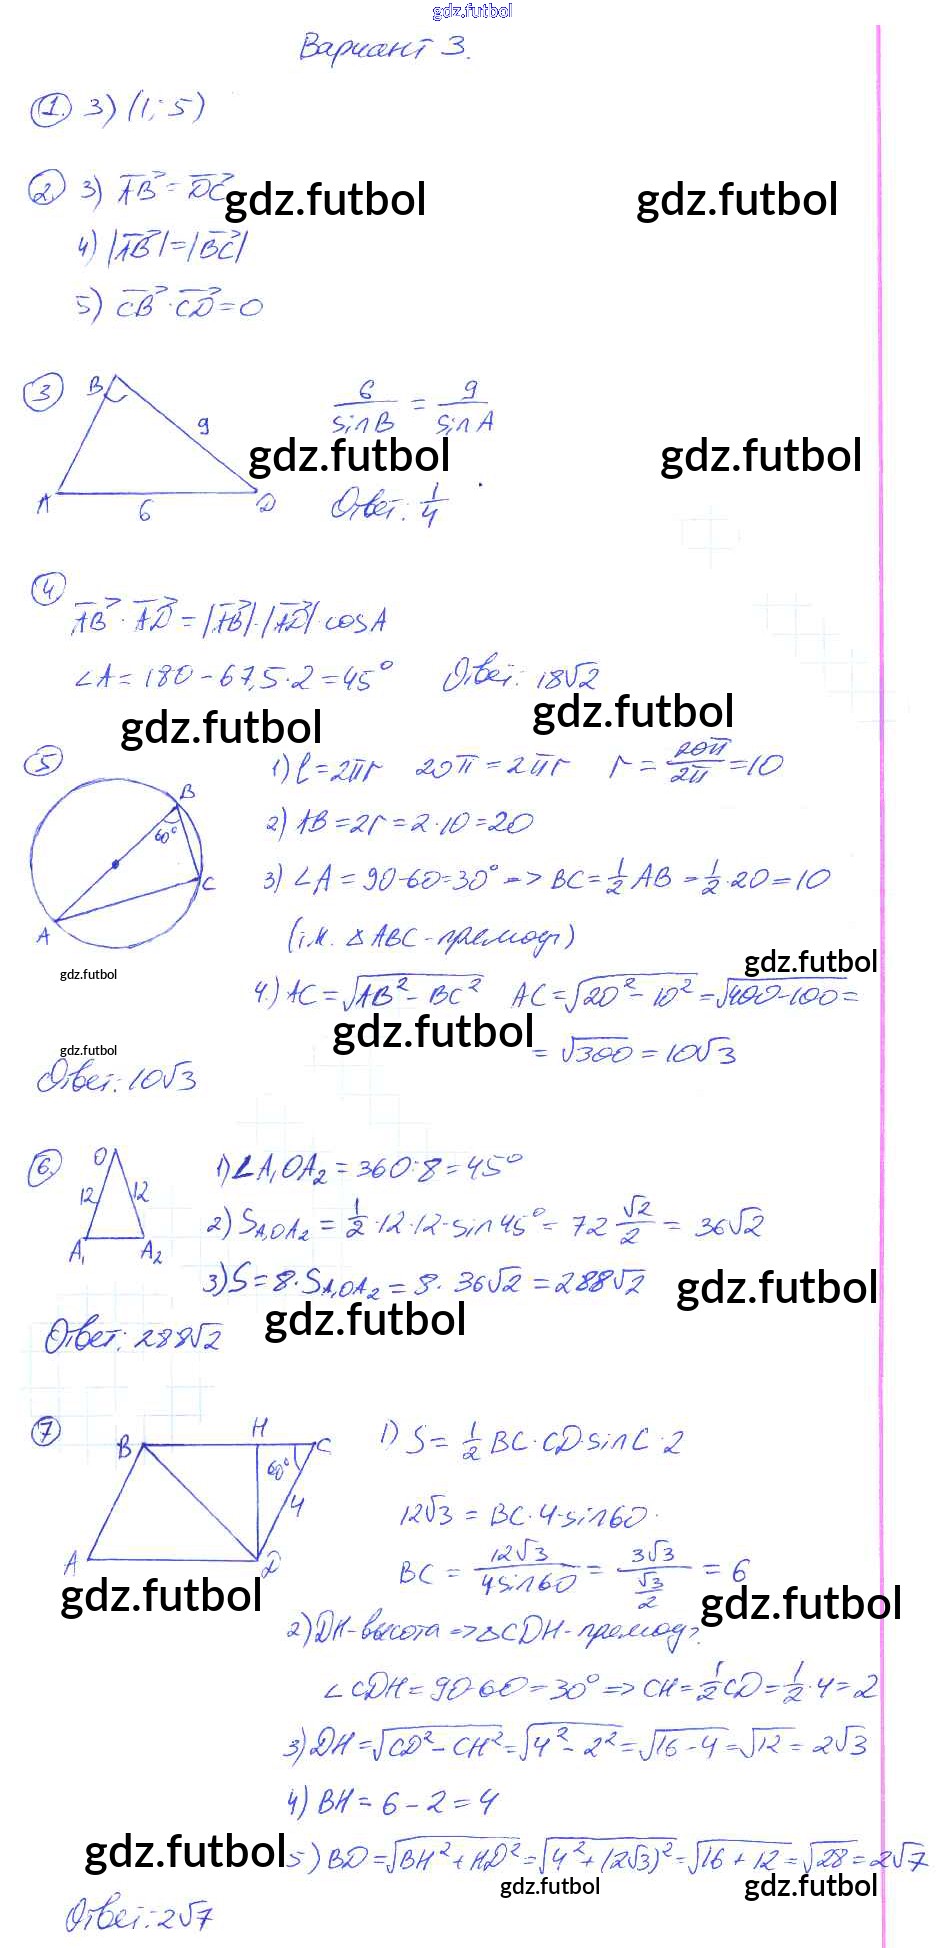 gdz.futbol
Вариант 3.
1. 3) (1; 5)
2. 3) AB = DC
gdz.futbol gdz.futbol
4) |AB| = |BC|
5) CB · CD = 0
3 B 9 A 6 D
6/sin B = 9/sin A
gdz.futbol gdz.futbol
Ответ: 1/4
4
AB · AD = |AB| · |AD| · cos A
∠A = 180 - 67,5 · 2 = 45° Ответ: 18√2
gdz.futbol gdz.futbol
5 1) l = 2πr 20π = 2πr r = 20π/2π = 10
B 60° C A
2) AB = 2r = 2 · 10 = 20
3) ∠A = 90-60=30° => BC = 1/2 AB = 1/2 · 20 = 10
(т.к. △ABC - прямоуг)
gdz.futbol gdz.futbol
4.) AC = √AB² - BC² AC = √20² - 10² = √400-100 =
gdz.futbol
gdz.futbol
= √300 = 10√3
Ответ: 10√3
6 O 12 12 A₁ A₂
1) ∠A₁OA₂ = 360:8 = 45°
2) S A₁OA₂ = 1/2 · 12 · 12 · sin 45° = 72 √2/2 = 36√2
3) S = 8 · S A₁OA₂ = 8 · 36√2 = 288√2
gdz.futbol
gdz.futbol
Ответ: 288√2
7 B H C 60° 4 A D
1) S = 1/2 BC · CD · sin C · 2
12√3 = BC · 4 · sin 60
BC = 12√3/4 sin 60 = 3√3/(√3/2) = 6
gdz.futbol gdz.futbol
2) DH - высота => △CDH - прямоуг.
∠CDH = 90-60 = 30° => CH = 1/2 CD = 1/2 · 4 = 2
3) DH = √CD² - CH² = √4² - 2² = √16 - 4 = √12 = 2√3
4) BH = 6 - 2 = 4
gdz.futbol
5) BD = √BH² + HD² = √4² + (2√3)² = √16 + 12 = √28 = 2√7
gdz.futbol gdz.futbol
Ответ: 2√7